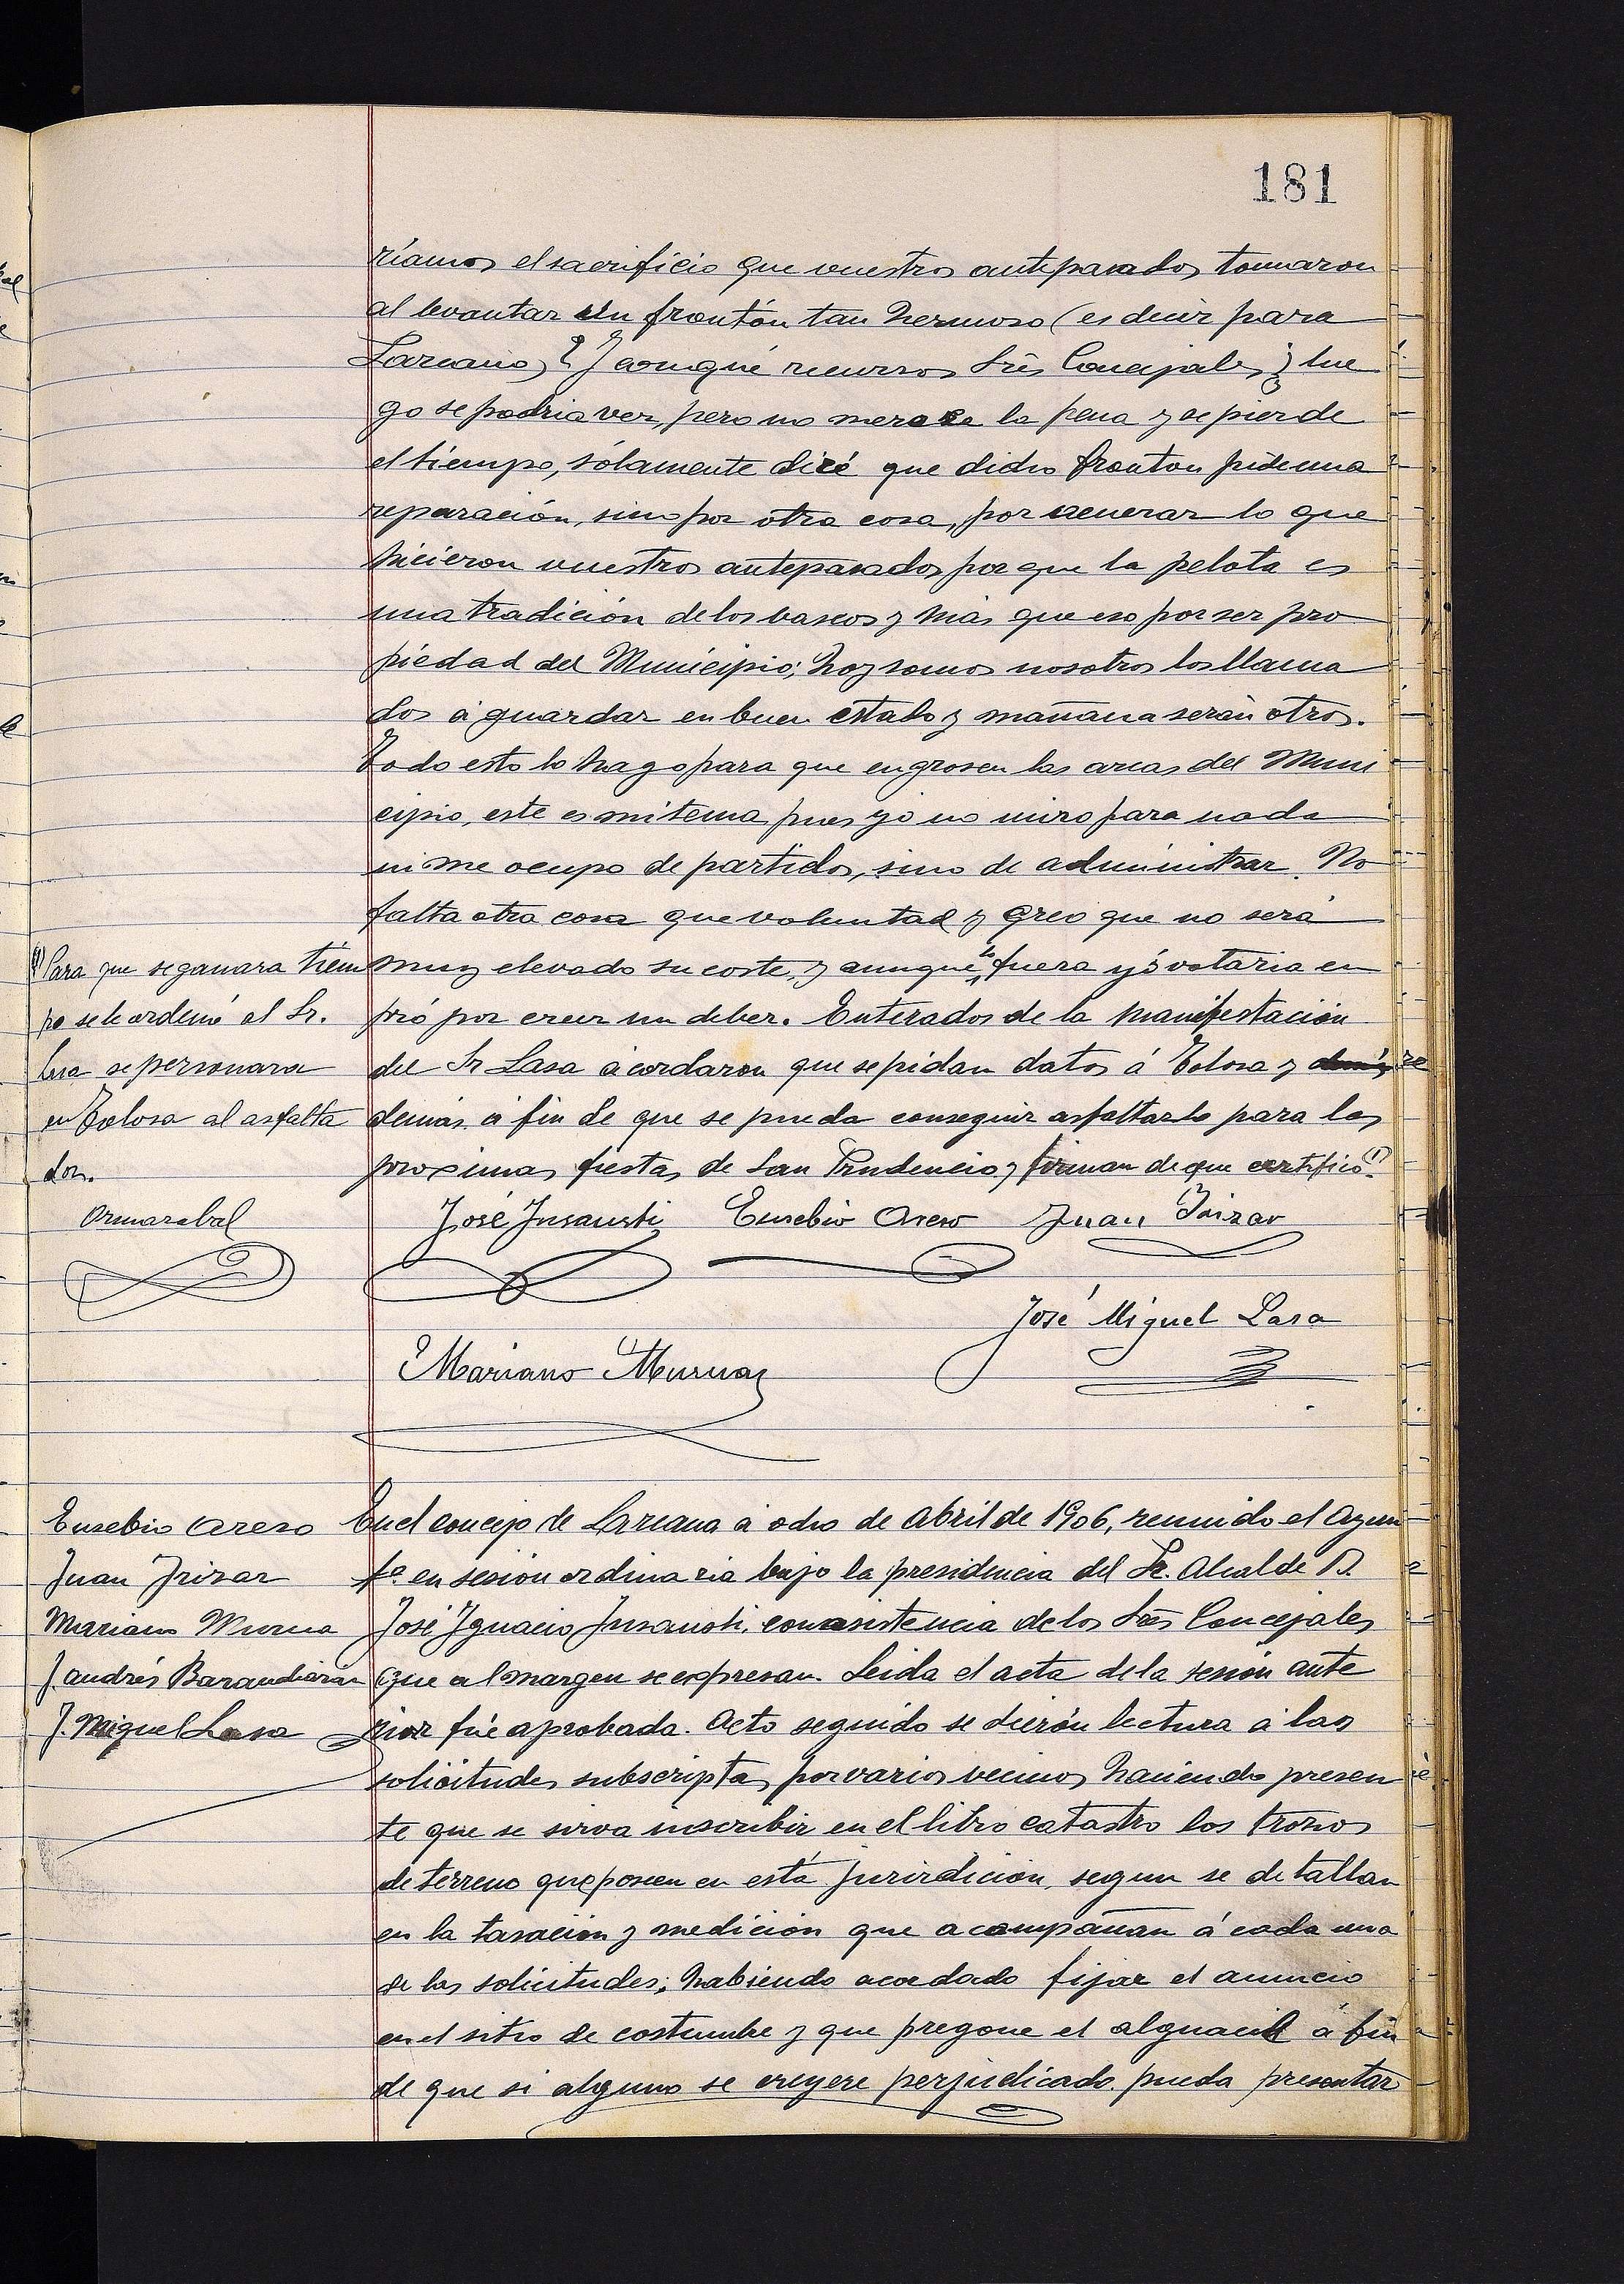 181
ríamos el sacrificio que nuestros antepasados tomaron
al levantar un frontón tan hermoso (es decir para
Lazcano) ¿Y con qué recursos Srēs Concejales? lue
go se podria ver, pero no merece la pena y se pierde
el tiempo, sólamente diré que dicho fronton pide una
reparación, sino por otra cosa, por venerar lo que
hicieron nuestros antepasados por que la pelota es
una tradición de los bascos y más que eso por ser pro
piedad del Municipio; hoy somos nosotros los llama
dos á guardar en buen estado y mañana serán otros.
Todo esto lo hago para que engrosen las arcas del Muni
cipio, este es mi tema pues yó no miro para nada
ni me ocupo de partidos, sino de administrar. No
falta otra cosa que voluntad y creo que no será
muy elevado su coste, y aunque lo fuera yó votaria en
pró por creer un deber. Enterados de la manifestación
del Sr Lasa acordaron que se pidan datos á Tolosa y demás
demás á fin de que se pueda conseguir asfaltarlo para las
proximas fiestas de San Prudencio y firman de que certifico (1)
(1) Para que se ganara tiem
po se le ordenó al Sr.
Lasa se personara
en Tolosa al asfalta
dor.
Ormazabal
José Insausti Eusebio Areso Juan Irizar
José Miguel Lasa
Mariano Murua
Eusebio Areso
Juan Irizar
Mariano Murua
J. Andrés Barandiaran
J. Miguel Lasa
En el concejo de Lazcano á ocho de Abril de 1906, reunido el Ayun
tº en sesion ordinaria bajo la presidencia del Sr. Alcalde D.
José Ignacio Insausti, con asistencia de los Srēs Concejales
que al margen se expresan. Leida el acta de la sesión ante
rior fué aprobada. Acto seguido se dierón lectura á las
solicitudes subscriptas por varios vecinos haciendo presen
te que se sirva inscribir en el libro catastro los trozos
de terreno que poseen en está jurirdición, segun se detallan
en la tasación y medición que acompañan á cada una
de las solicitudes; habiendo acordado fijar el anuncio
en el sitio de costumbre y que pregone el alguacil á fin
de que si alguno se creyere perjudicado pueda presentar